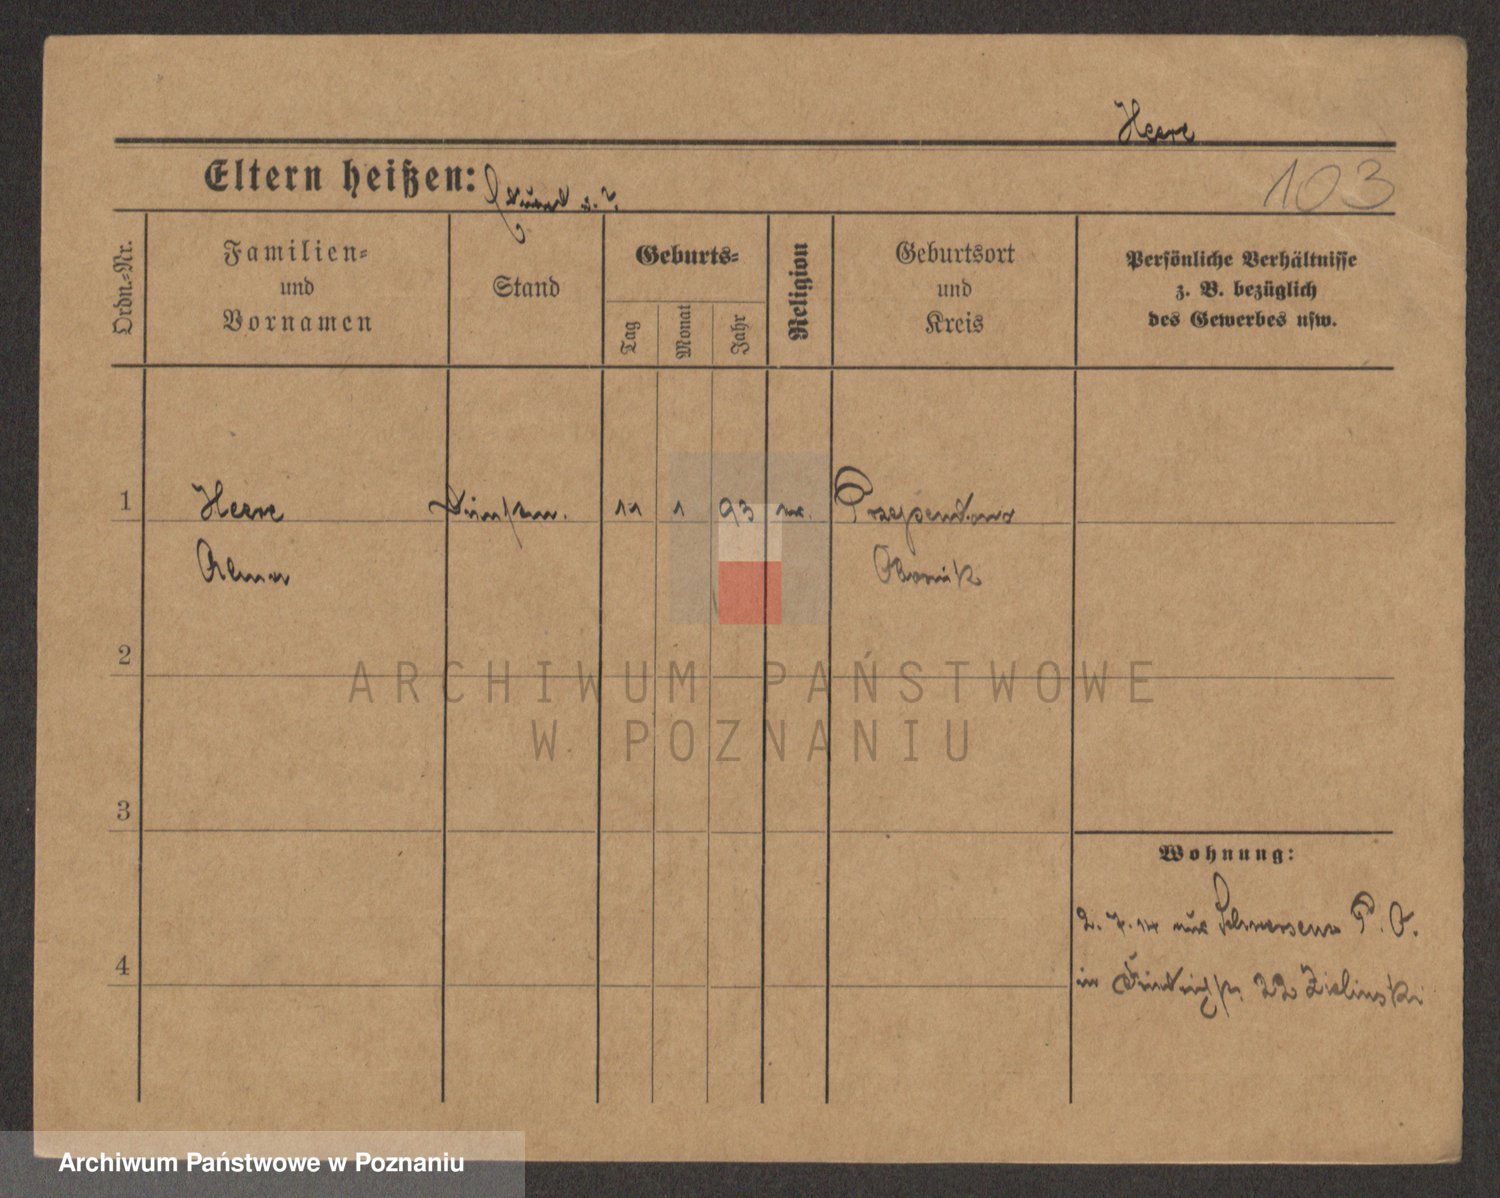 Heere
Eltern heißen:
103
Ordn.=Nr.
Familien=
und
Vornamen
Stand
Geburts=
Tag
Monat
Jahr
Religion
Geburtsort
und
Kreis
Persönliche Verhältnisse
z. B. bezüglich
des Gewerbes usw.
1
Heere
11
1
93
Alma
Obornik
2
ARCHIWUM PAŃSTWOWE
W POZNANIU
3
Wohnung:
2. 7. 14 aus Schwersenz P. O.
4
in 22 Zielinski
Archiwum Państwowe w Poznaniu